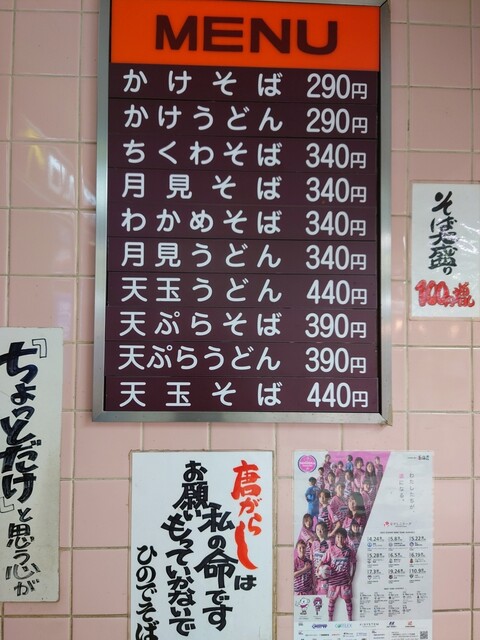 MENU
かけそば 290円
かけうどん 290円
ちくわそば 340円
月見そば 340円
わかめそば 340円
月見うどん 340円
天玉うどん 440円
天ぷらそば 390円
天ぷらうどん 390円
天玉そば 440円
そば大盛り
100円増
『ちょっとだけ』と思う心が
唐がらしは
私の命です
お願いもっていかないで
ひのでそば
わたしたちが